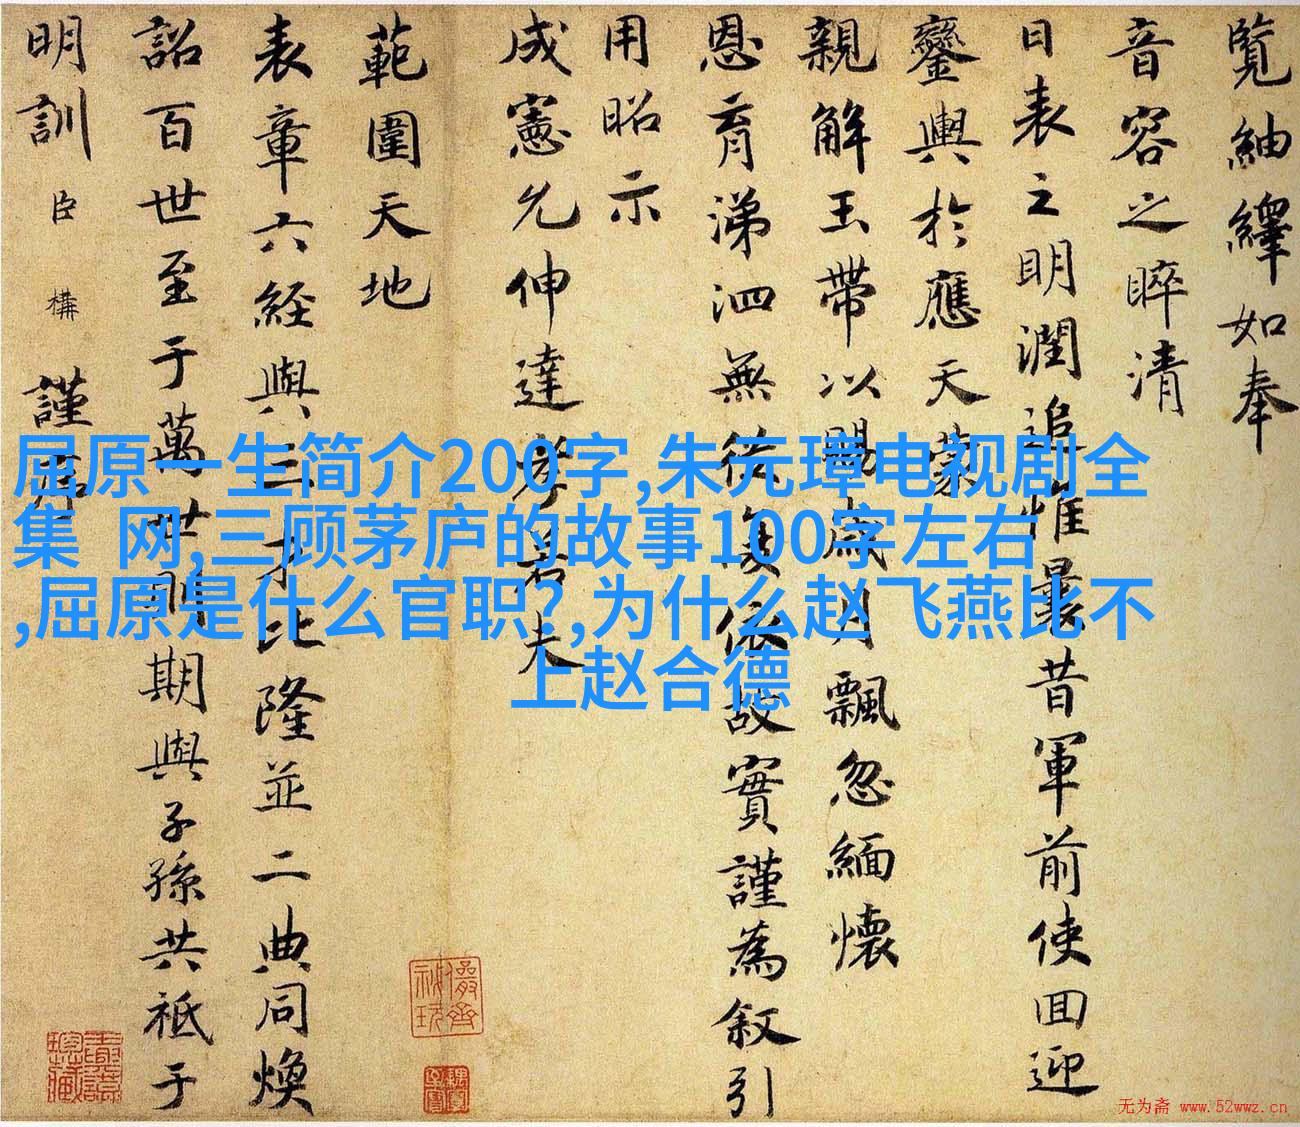 覽紬繹如奉
音容之睟清
日表之明潤追惟曩昔軍前使囬迎
鑾輿於應天蒙
親解玉帶以賜歲月飄忽緬懷
恩育涕泗無從復依故實謹為叙引
用昭示
成憲允伸達孝若夫
範圍天地
表章六經與三才比隆並二典同煥
詔百世至于萬世明期與子孫共祗于
明訓臣構謹書
屈原一生简介200字,朱元璋电视剧全
集 网,三顾茅庐的故事100字左右
,屈原是什么官职?,为什么赵飞燕比不
上赵合德
无为斋 www.52wwz.cn